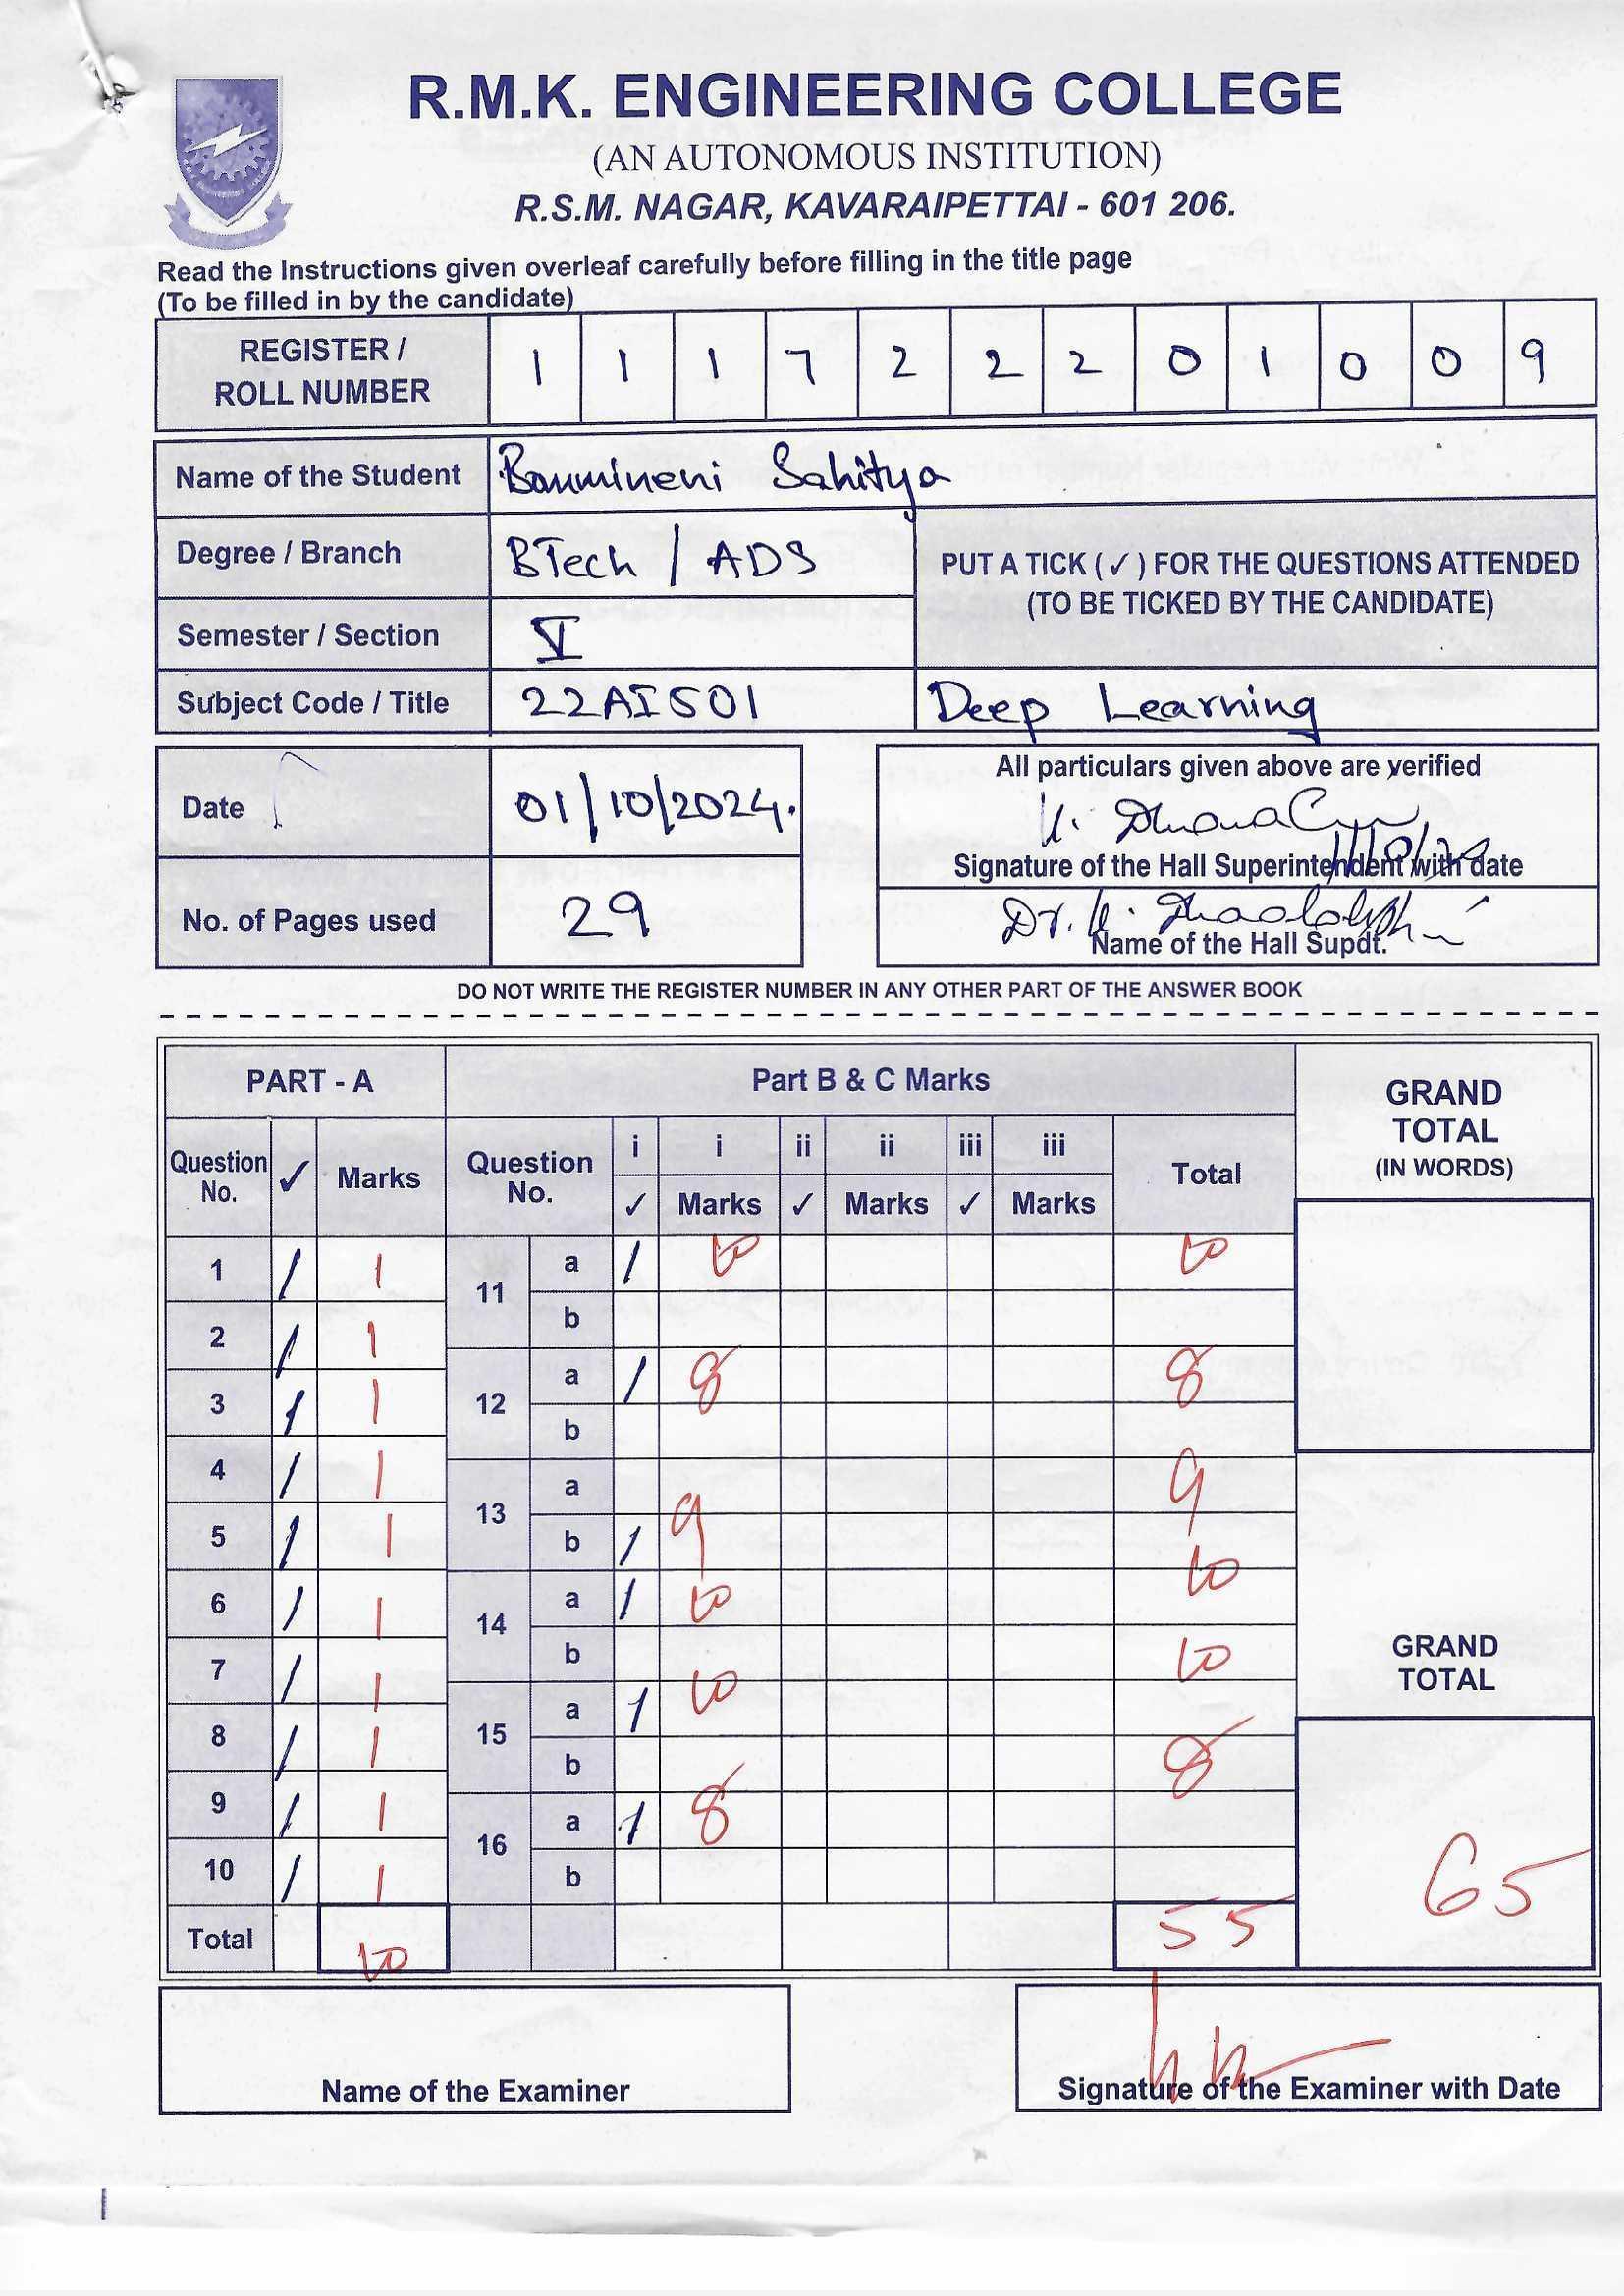 R.M.K. ENGINEERING COLLEGE
(AN AUTONOMOUS INSTITUTION)
R.S.M. NAGAR, KAVARAIPETTAI - 601 206.
Read the Instructions given overleaf carefully before filling in the title page
(To be filled in by the candidate)
REGISTER / ROLL NUMBER 1 1 1 7 2 2 2 0 1 0 0 9
Name of the Student Bommineni Sahitya
Degree / Branch BTech / ADS
PUT A TICK (✓) FOR THE QUESTIONS ATTENDED
(TO BE TICKED BY THE CANDIDATE)
Semester / Section V
Subject Code / Title 22AI501 Deep Learning
Date 01/10/2024.
No. of Pages used 29
All particulars given above are verified
Signature of the Hall Superintendent with date
Dr.
Name of the Hall Supdt.
DO NOT WRITE THE REGISTER NUMBER IN ANY OTHER PART OF THE ANSWER BOOK
PART - A
Question No. ✓ Marks
1 / 1
2 / 1
3 / 1
4 / 1
5 / 1
6 / 1
7 / 1
8 / 1
9 / 1
10 / 1
Total 10
Part B & C Marks
Question No. i ✓ i Marks ii ✓ ii Marks iii ✓ iii Marks Total
11 a / 10 10
b
12 a / 8 8
b
13 a 9
b / 9
14 a / 10 10
b
15 a / 10 10
b
16 a / 8 8
b
55
GRAND
TOTAL
(IN WORDS)
GRAND
TOTAL
65
Name of the Examiner
Signature of the Examiner with Date